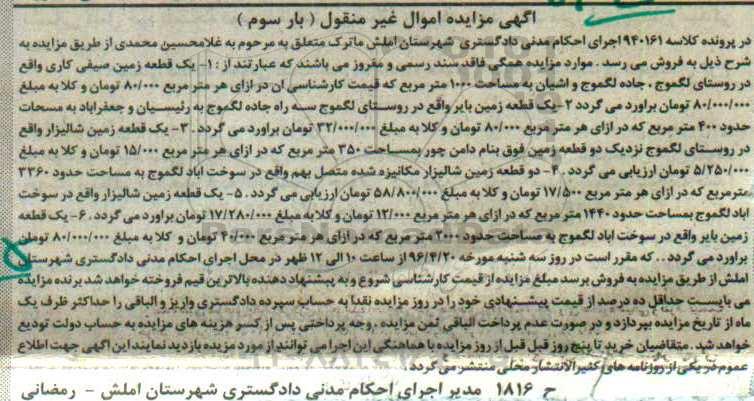 آگهی مزایده اموال غیر منقول ( بار سوم )
در پرونده کلاسه ۹۴۰۱۶۱ اجرای احکام مدنی دادگستری شهرستان املش ماترک متعلق به مرحوم به غلامحسین محمدی از طریق مزایده به
شرح ذیل به فروش می رسد . موارد مزایده همگی فاقد سند رسمی و مفروز می باشند که عبارتند از : ۱- یک قطعه زمین صیفی کاری واقع
در روستای لگموج ، جاده لگموج و اشیان به مساحت ۱۰۰۰ متر مربع که قیمت کارشناسی آن در ازای هر متر مربع ۸۰/۰۰۰ تومان و کلا به مبلغ
۸۰/۰۰۰/۰۰۰ تومان براورد می گردد ۲- یک قطعه زمین بایر واقع در روستای لگموج سه راه جاده لگموج به رئیسیان و جعفرآباد به مسحات
حدود ۴۰۰ متر مربع که در ازای هر متر مربع ۸۰/۰۰۰ تومان و کلا به مبلغ ۳۲/۰۰۰/۰۰۰ تومان براورد می گردد . ۳- یک قطعه زمین شالیزار واقع
در روستای لگموج نزدیک دو قطعه زمین فوق بنام دامن چور بمساحت ۳۵۰ متر مربع که در ازای هر متر مربع ۱۵/۰۰۰ تومان و کلا به مبلغ
۵/۲۵۰/۰۰۰ تومان ارزیابی می گردد . ۴- دو قطعه زمین شالیزار مکانیزه شده متصل بهم واقع در سوخت اباد لگموج به مساحت حدود ۳۳۶۰
مترمربع که در ازای هر متر مربع ۱۷/۵۰۰ تومان و کلا به مبلغ ۵۸/۸۰۰/۰۰۰ تومان ارزیابی می گردد . ۵- یک قطعه زمین شالیزار واقع در سوخت
اباد لگموج بمساحت حدود ۱۴۴۰ متر مربع که در ازای هر متر مربع ۱۲/۰۰۰ تومان و کلا به مبلغ ۱۷/۲۸۰/۰۰۰ تومان براورد می گردد . ۶- یک قطعه
زمین بایر واقع در سوخت اباد لگموج به مساحت حدود ۲۰۰۰ متر مربع که در ازای هر متر مربع ۴۰/۰۰۰ تومان و کلا به مبلغ ۸۰/۰۰۰/۰۰۰ تومان
براورد می گردد . . که مقرر است در روز سه شنبه مورخه ۹۶/۴/۲۰ از ساعت ۱۰ الی ۱۲ ظهر در محل اجرای احکام مدنی دادگستری شهرستان
املش از طریق مزایده به فروش برسد مبلغ مزایده از قیمت کارشناسی شروع و به پیشنهاد دهنده بالاترین قیم فروخته خواهد شد برنده مزایده
می بایست حداقل ده درصد از قیمت پیشنهادی خود را در روز مزایده نقدا به حساب سپرده دادگستری واریز و الباقی را حداکثر ظرف یک
ماه از تاریخ مزایده بپردازد و در صورت عدم پرداخت الباقی ثمن مزایده ، وجه پرداختی پس از کسر هزینه های مزایده به حساب دولت تودیع
خواهد شد . متقاضیان خرید تا پنج روز قبل قبل از روز مزایده با هماهنگی این اجرا می توانند از مورد مزایده بازدید نمایند این آگهی جهت اطلاع
عموم در یکی از روزنامه های کثیرالانتشار محلی منتشر می گردد
ح ۱۸۱۶ مدیر اجرای احکام مدنی دادگستری شهرستان املش - رمضانی